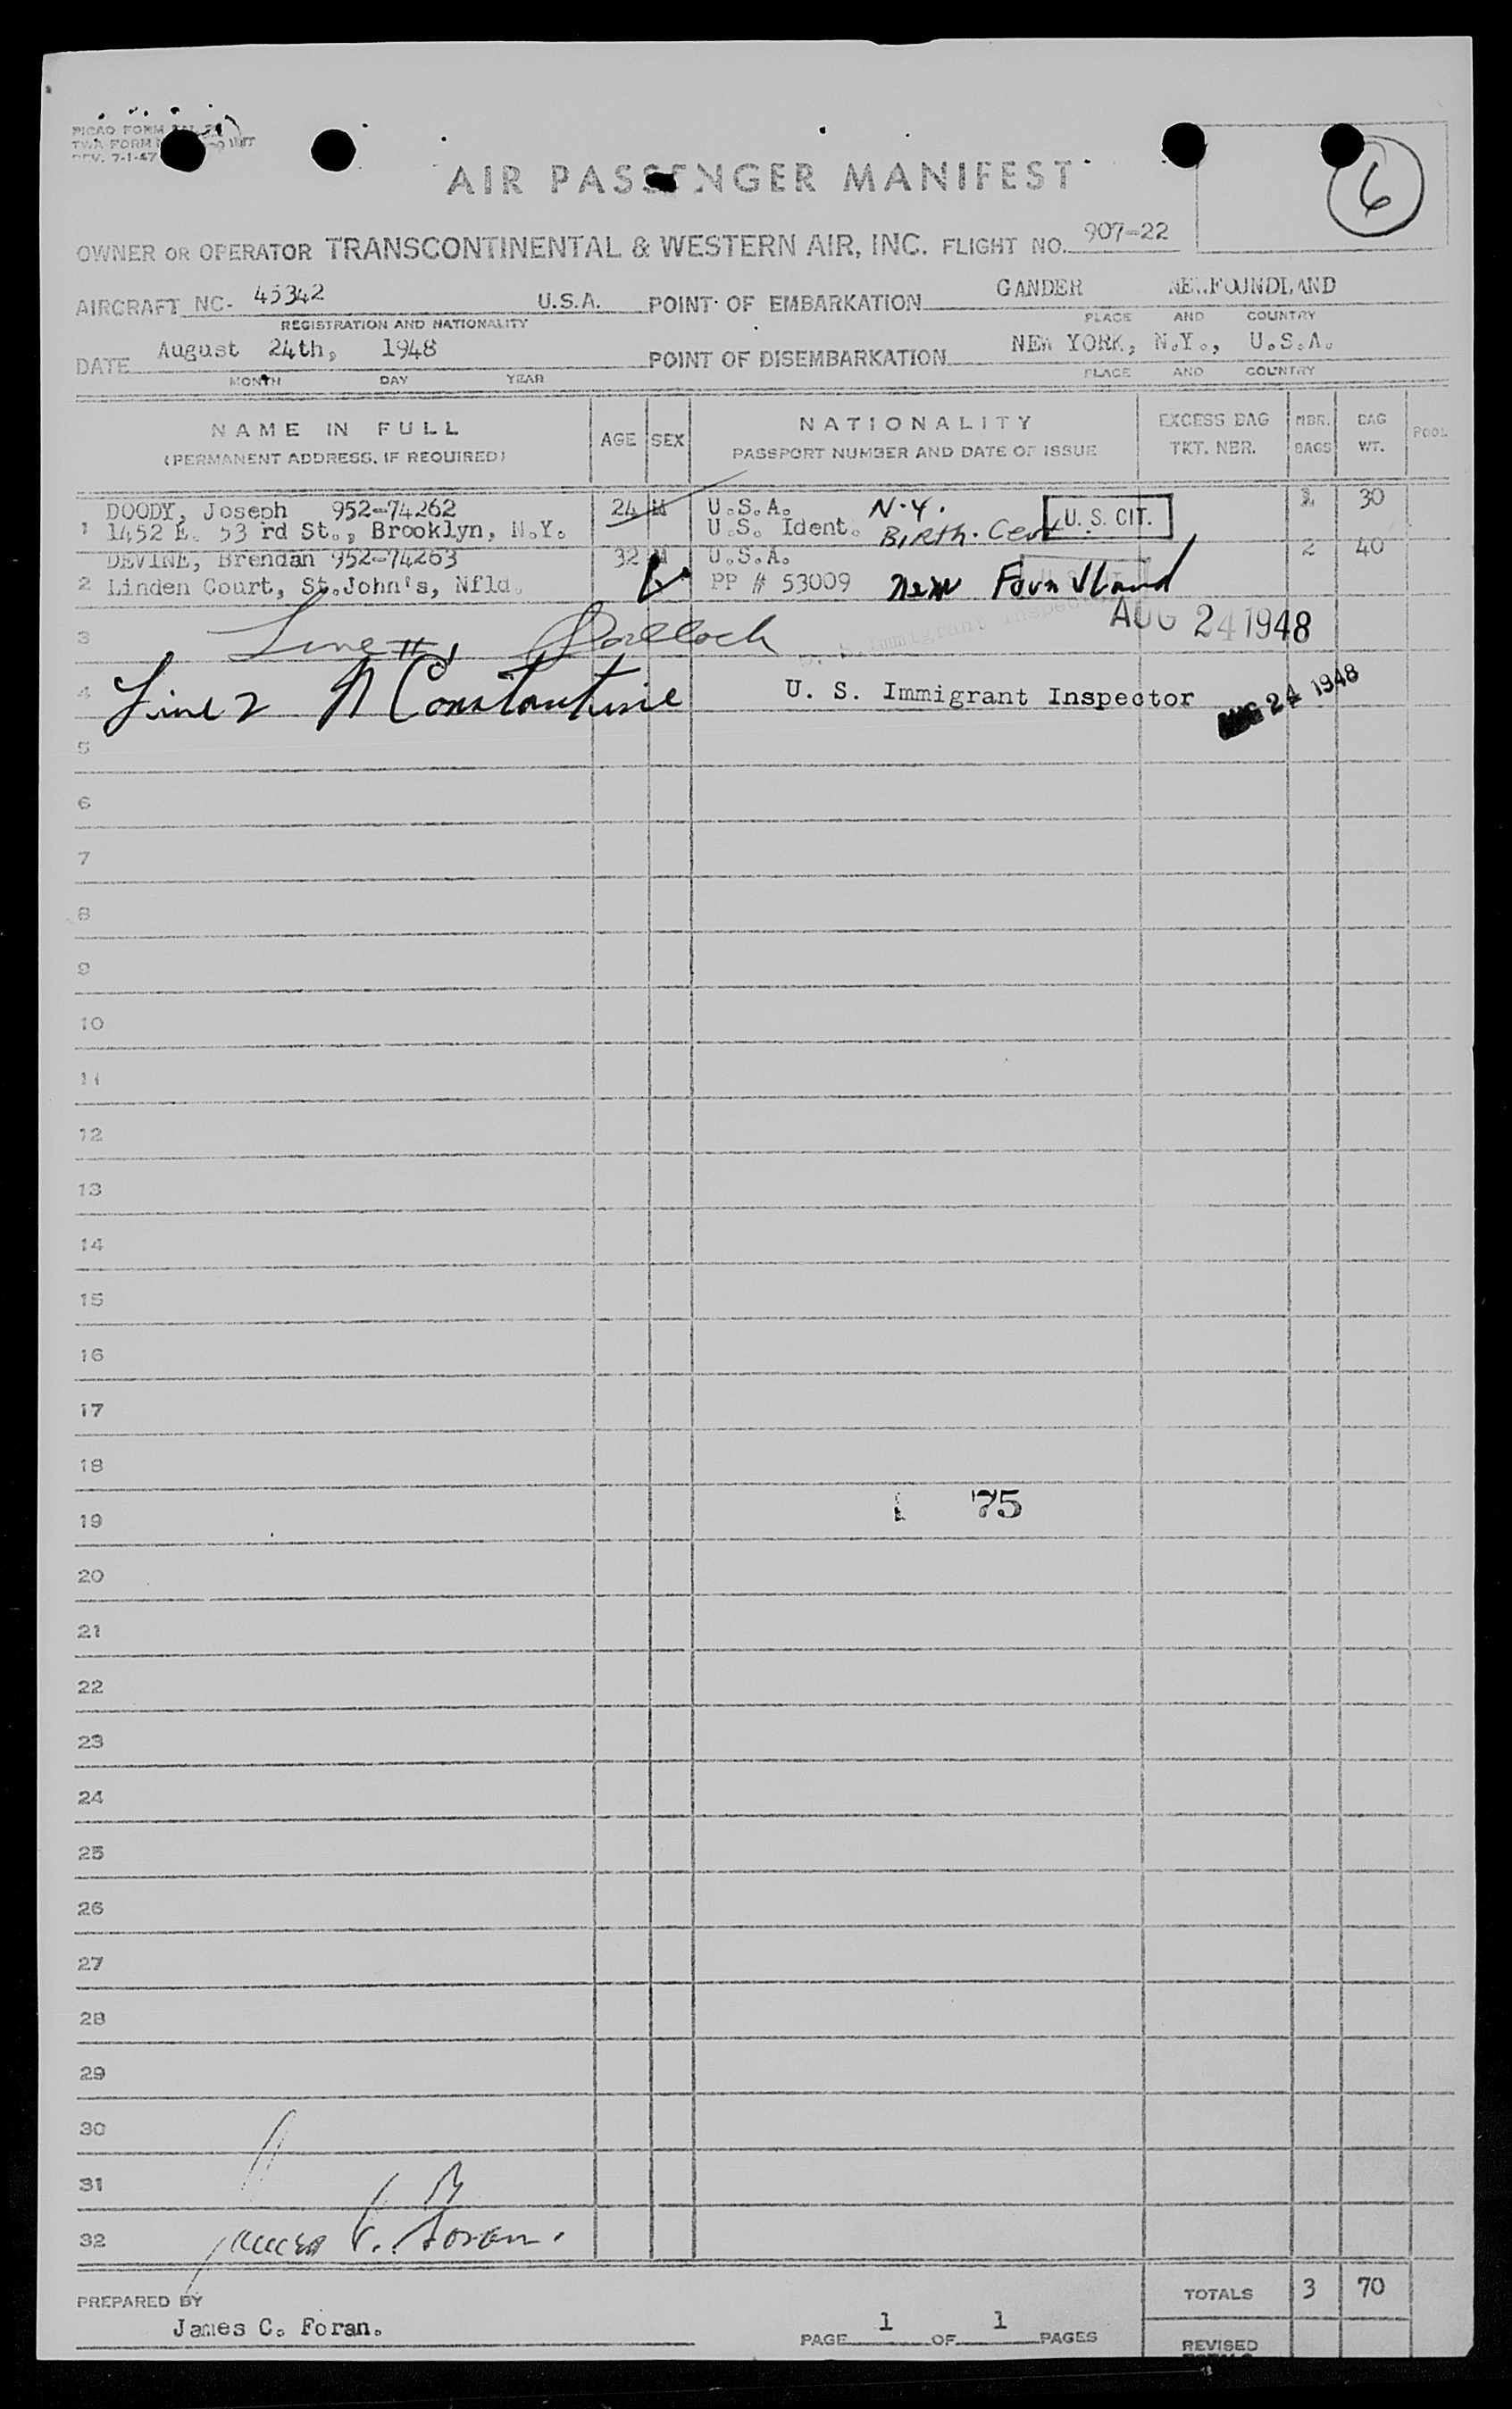 PICAO FORM
TWA FORM
REV. 7-1-47
6
AIR PASSENGER MANIFEST
OWNER OR OPERATOR TRANSCONTINENTAL & WESTERN AIR, INC. FLIGHT NO. 907-22
AIRCRAFT NC- 45342 U.S.A. POINT OF EMBARKATION GANDER NEWFOUNDLAND
REGISTRATION AND NATIONALITY PLACE AND COUNTRY
DATE August 24th, 1948 POINT OF DISEMBARKATION NEW YORK, N.Y., U.S.A.
MONTH DAY YEAR PLACE AND COUNTRY
NAME IN FULL AGE SEX NATIONALITY EXCESS BAG NBR. BAG POOL
(PERMANENT ADDRESS, IF REQUIRED) PASSPORT NUMBER AND DATE OF ISSUE TKT. NBR. BAGS WT.
DOODY, Joseph 952-74262 24 M U.S.A. N.Y. 1 30
1 1452 E. 53 rd St., Brooklyn, N.Y. U.S. Ident. Birth. Cert. U. S. CIT.
DEVINE, Brendan 952-74263 32 M U.S.A. 2 40
2 Linden Court, St.John's, Nfld. PP # 53009 New Foundland
3 Line #1 AUG 24 1948
4 Line 2 N Constantine U. S. Immigrant Inspector AUG 24 1948
5
6
7
8
9
10
11
12
13
14
15
16
17
18
19 75
20
21
22
23
24
25
26
27
28
29
30
31
32 James C. Foran.
TOTALS 3 70
PREPARED BY
James C. Foran.
PAGE 1 OF 1 PAGES
REVISED